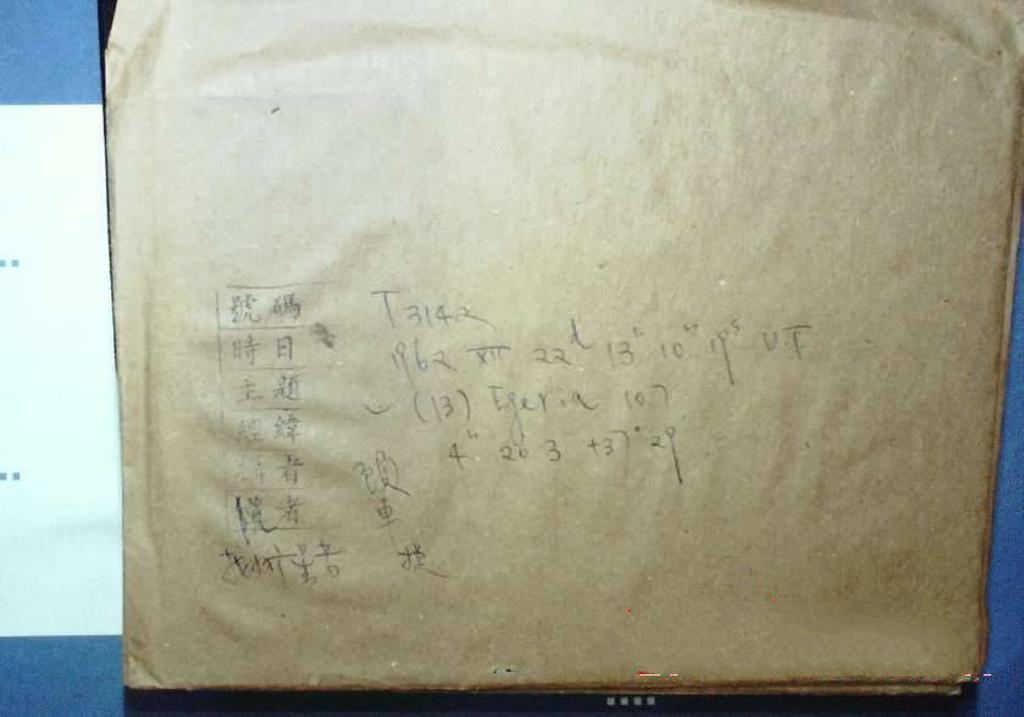 號碼 T3142
時日 1962 XII 22d 13h 10m 19s UT
主題 (13) Egeria 107
經緯 4h 20 3 +37° 29
者
者 車